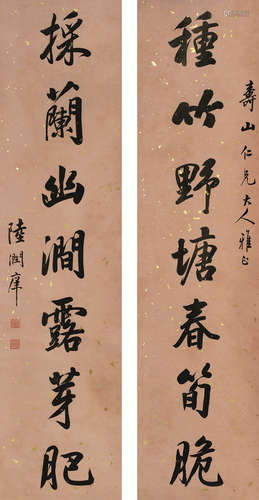 壽山仁兄大人雅正
種竹野塘春筍脆
採蘭幽澗露芽肥
陸潤庠